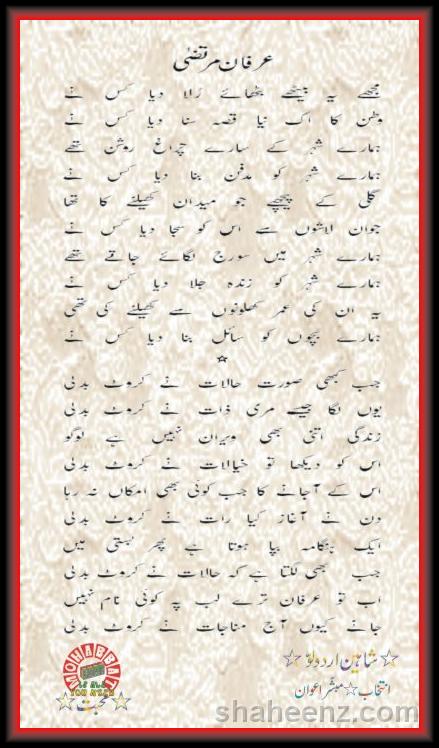 عرفان مرتضیٰ
مجھے یہ بیٹھے بٹھائے رُلا دیا کس نے
وطن کا اک نیا قصہ سنا دیا کس نے
ہمارے شہر کے سارے چراغ روشن تھے
ہمارے شہر کو مدفن بنا دیا کس نے
گلی کے پیچھے جو میدان کھیلنے کا تھا
جوان لاشوں سے اس کو سجا دیا کس نے
ہمارے شہر میں سورج لگائے جاتے تھے
ہمارے شہر کو زندہ جلا دیا کس نے
یہ ان کی عمر کھلونوں سے کھیلنے کی تھی
ہمارے بچوں کو سائل بنا دیا کس نے
☆
جب کبھی صورت حالات نے کروٹ بدلی
یوں لگا جیسے مری ذات نے کروٹ بدلی
زندگی اتنی بھی ویران نہیں ہے لوگو
اس کو دیکھا تو خیالات نے کروٹ بدلی
اس کے آجانے کا جب کوئی بھی امکاں نہ رہا
دن نے آغاز کیا رات نے کروٹ بدلی
ایک ہنگامہ بپا ہوتا ہے پھر بستی میں
جب بھی لگتا ہے کہ حالات نے کروٹ بدلی
اب تو عرفان ترے لب پہ کوئی نام نہیں
جانے کیوں آج مناجات نے کروٹ بدلی
☆شاہین اردو☆
انتخاب☆مبشر اعوان
MOHABBAT
IS ALL
YOU NEED
☆محبت☆
shaheenz.com